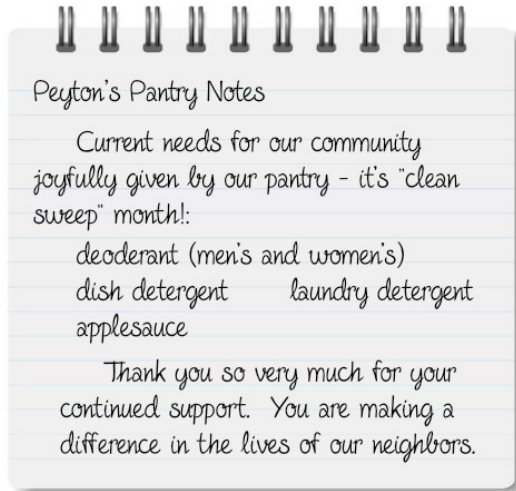 Peyton's Pantry Notes
Current needs for our community
joyfully given by our pantry - it's "clean
sweep" month!:
deoderant (men's and women's)
dish detergent laundry detergent
applesauce
Thank you so very much for your
continued support. You are making a
difference in the lives of our neighbors.